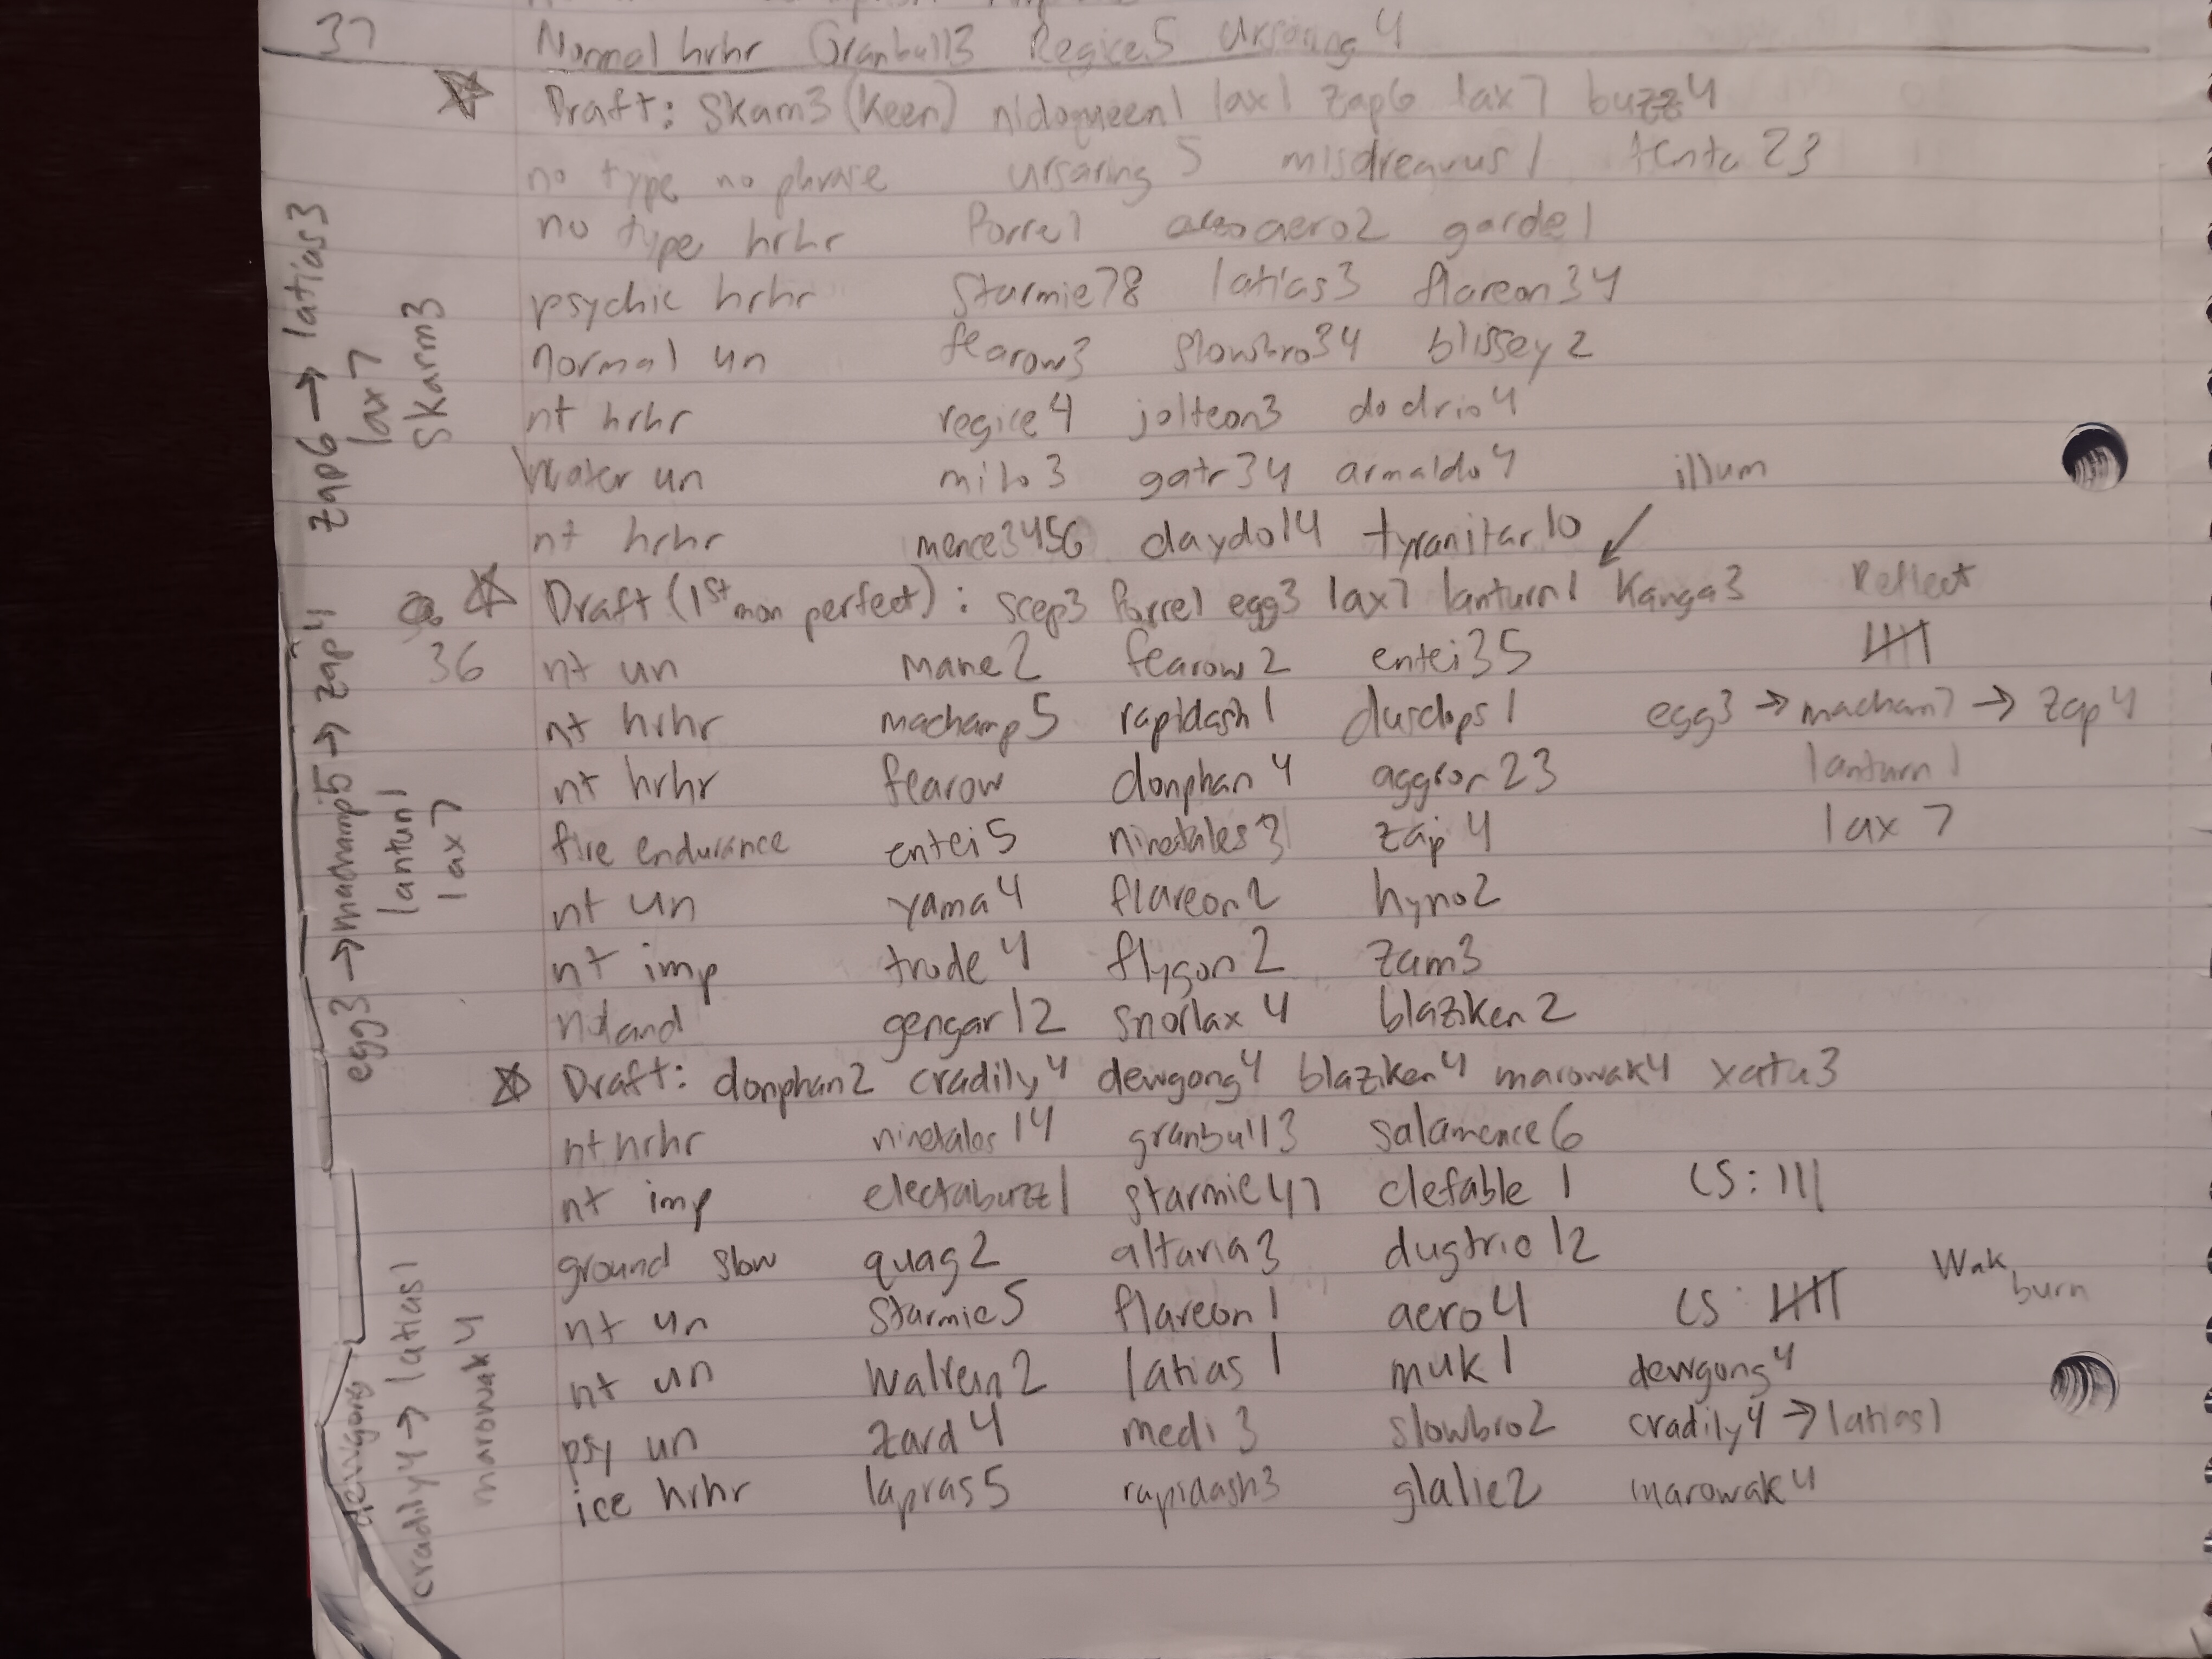 37 Normal hrhr Granbull3 Regice5 Ursaring4
Draft: Skarm3 (Keen) nidoqueen1 lax1 zap6 lax7 buzz4
no type no phrase ursaring 5 misdreavus 1 tenta 23
no type hrhr Porre1 aero2 garde1
psychic hrhr Starmie78 latias3 flareon34
normal un fearow3 slowbro34 blissey2
nt hrhr regice4 jolteon3 dodrio4
Water un milo3 gatr34 armaldo4 illum
nt hrhr mence3456 claydol4 tyranitar10
Draft (1st mon perfect): scep3 Porre1 egg3 lax7 lanturn1 Kanga3 Reflect
36 nt un mane2 fearow2 entei35
nt hrhr machamp5 rapidash1 dusclops1 egg3 → macham7 → zap4
nt hrhr fearow donphan4 aggron23 lanturn1
fire endurance entei5 ninetales3 zap4 lax7
nt un yama4 flareon2 hyno2
nt imp trode4 flygon2 zam3
noland gengar12 snorlax4 blaziken2
Draft: donphan2 cradily4 dewgong4 blaziken4 marowak4 xatu3
nt hrhr ninetales14 granbull3 salamence6
nt imp electabuzz1 starmie47 clefable1 CS: III
ground slow quag2 altaria3 dugtrio12
nt un starmie5 flareon1 aero4 CS: Wak burn
nt un walrein2 latias1 muk1 dewgong4
psy un zard4 medi3 slowbro2 cradily4 → latias1
ice hrhr lapras5 rapidash3 glalie2 marowak4
zap6 → latias3
lax7
Skarm3
egg3 → machamp5 → zap4
lanturn1
lax7
dewgong
cradily4 → latias1
marowak4